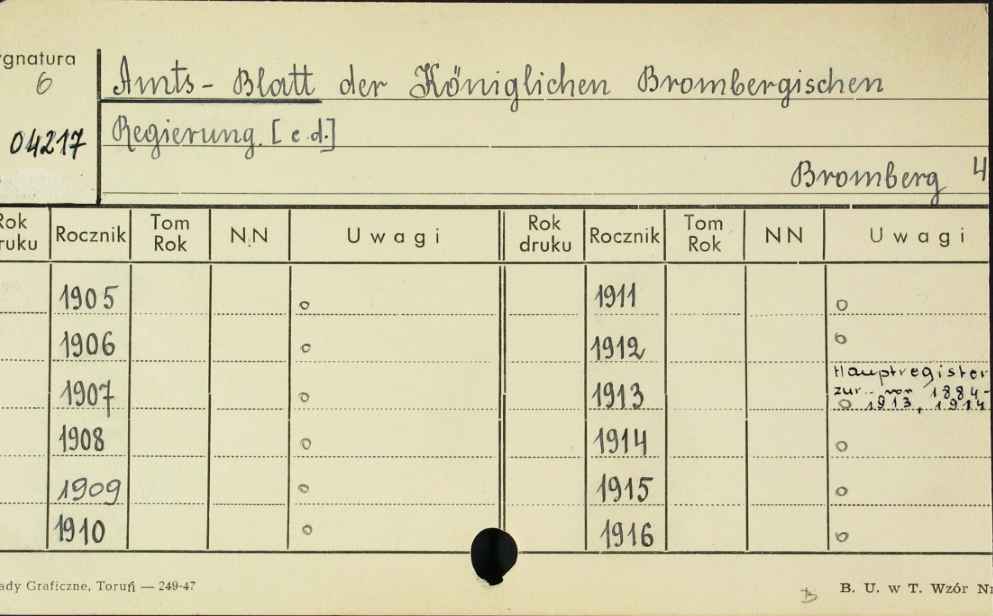 ygnatura
6
04217
Amts-Blatt der Königlichen Brombergischen
Regierung. [e.d.]
Bromberg 4
Rok druku Rocznik Tom Rok N.N Uwagi Rok druku Rocznik Tom Rok NN Uwagi
1905 o 1911 o
1906 o 1912 o
Hauptregister
zur.. von 1884-
1907 o 1913 o 1913, 1914
1908 o 1914 o
1909 o 1915 o
1910 o 1916 o
ady Graficzne, Toruń — 249-47 B. U. w T. Wzór Nr